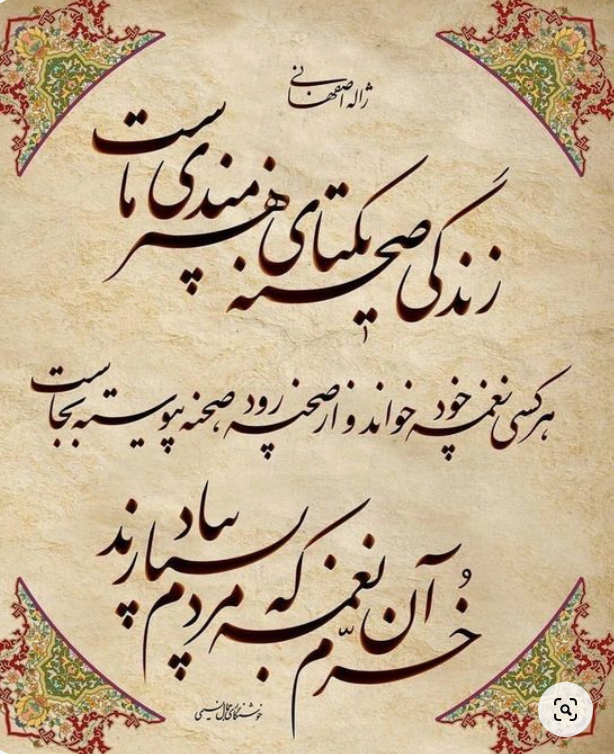 ژاله اصفهانی
زندگی صحنه یکتای هنرمندی ماست
هرکسی نغمه خود خواند و از صحنه رود صحنه پیوسته بجاست
خرّم آن نغمه که مردم بسپارند بیاد